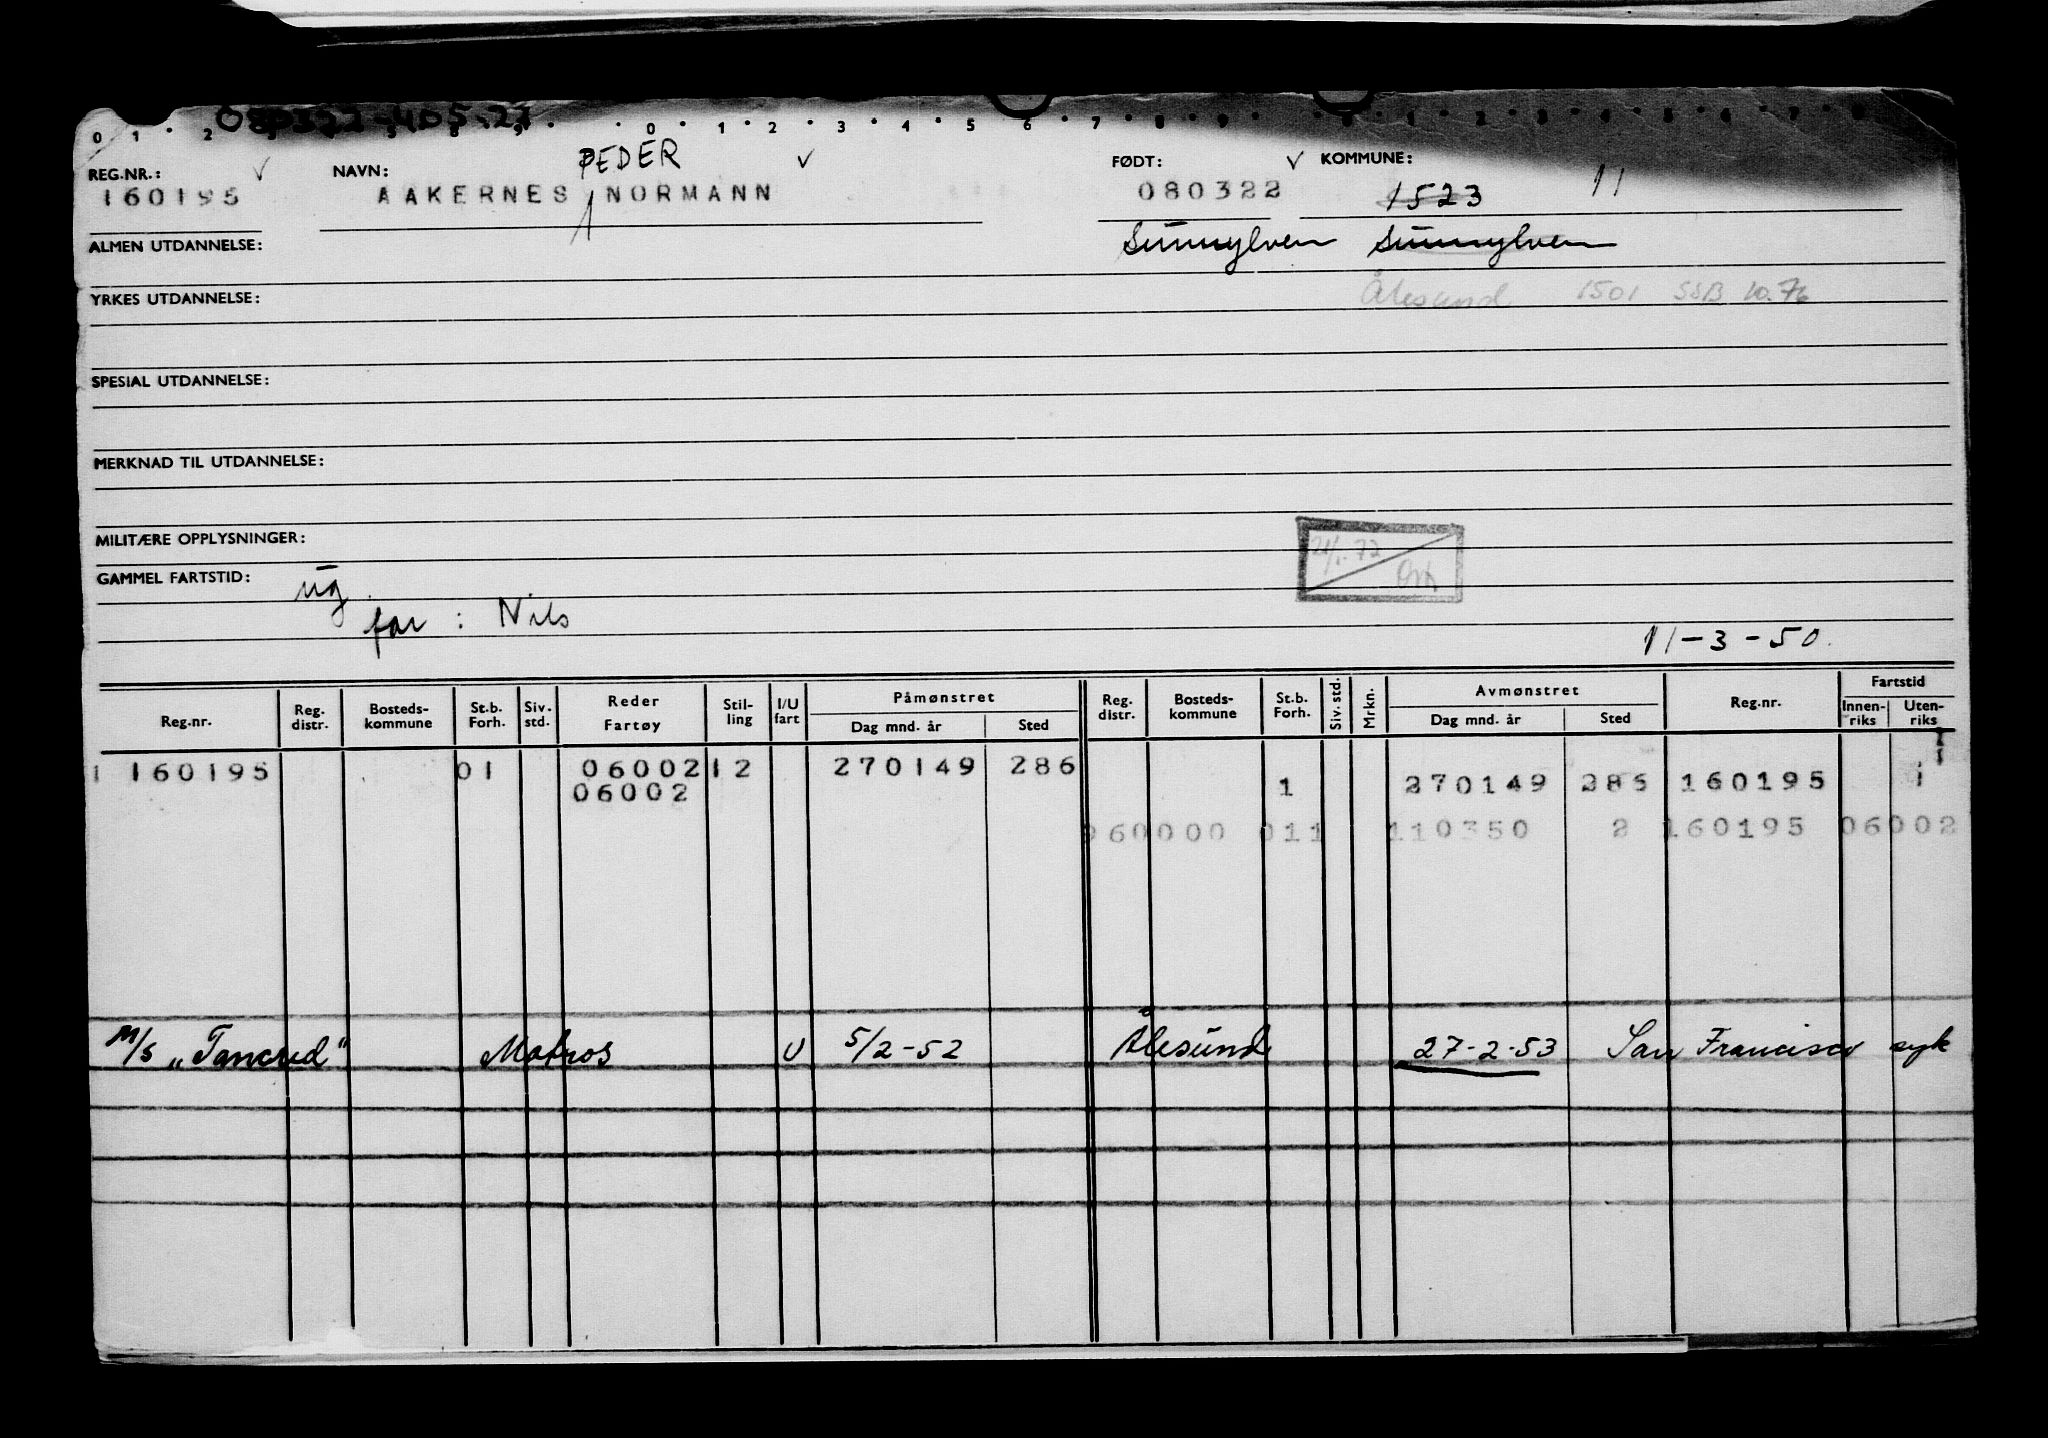 080322-405.27
0 1 . 2 . . 0 . 1 2 . 3 . 4 . 5 . 6 . 7 . 8 . 9
REG.NR.: NAVN: PEDER FØDT: KOMMUNE:
160195 AAKERNES NORMANN 080322 1523 11
ALMEN UTDANNELSE: Sunnylven Sunnylven
YRKES UTDANNELSE: Ålesund 1501 SSB 10.76
SPESIAL UTDANNELSE:
MERKNAD TIL UTDANNELSE:
MILITÆRE OPPLYSNINGER:
GAMMEL FARTSTID: ug
far : Nils
11-3-50.
Reg.nr. Reg. distr. Bosteds-kommune St.b. Forh. Siv. std. Reder Fartøy Stil-ling I/U fart Påmønstret Dag mnd. år Sted Reg. distr. Bosteds-kommune St.b. Forh. Siv. std. Mrkn. Avmønstret Dag mnd. år Sted Reg.nr. Fartstid Innen-riks Uten-riks
1 160195 01 06002 12 270149 286
06002 1 270149 286 160195 1
960000 011 110350 2 160195 06002
M/S "Tancred" Matros U 5/2-52 Ålesund 27-2-53 San Francisco syk